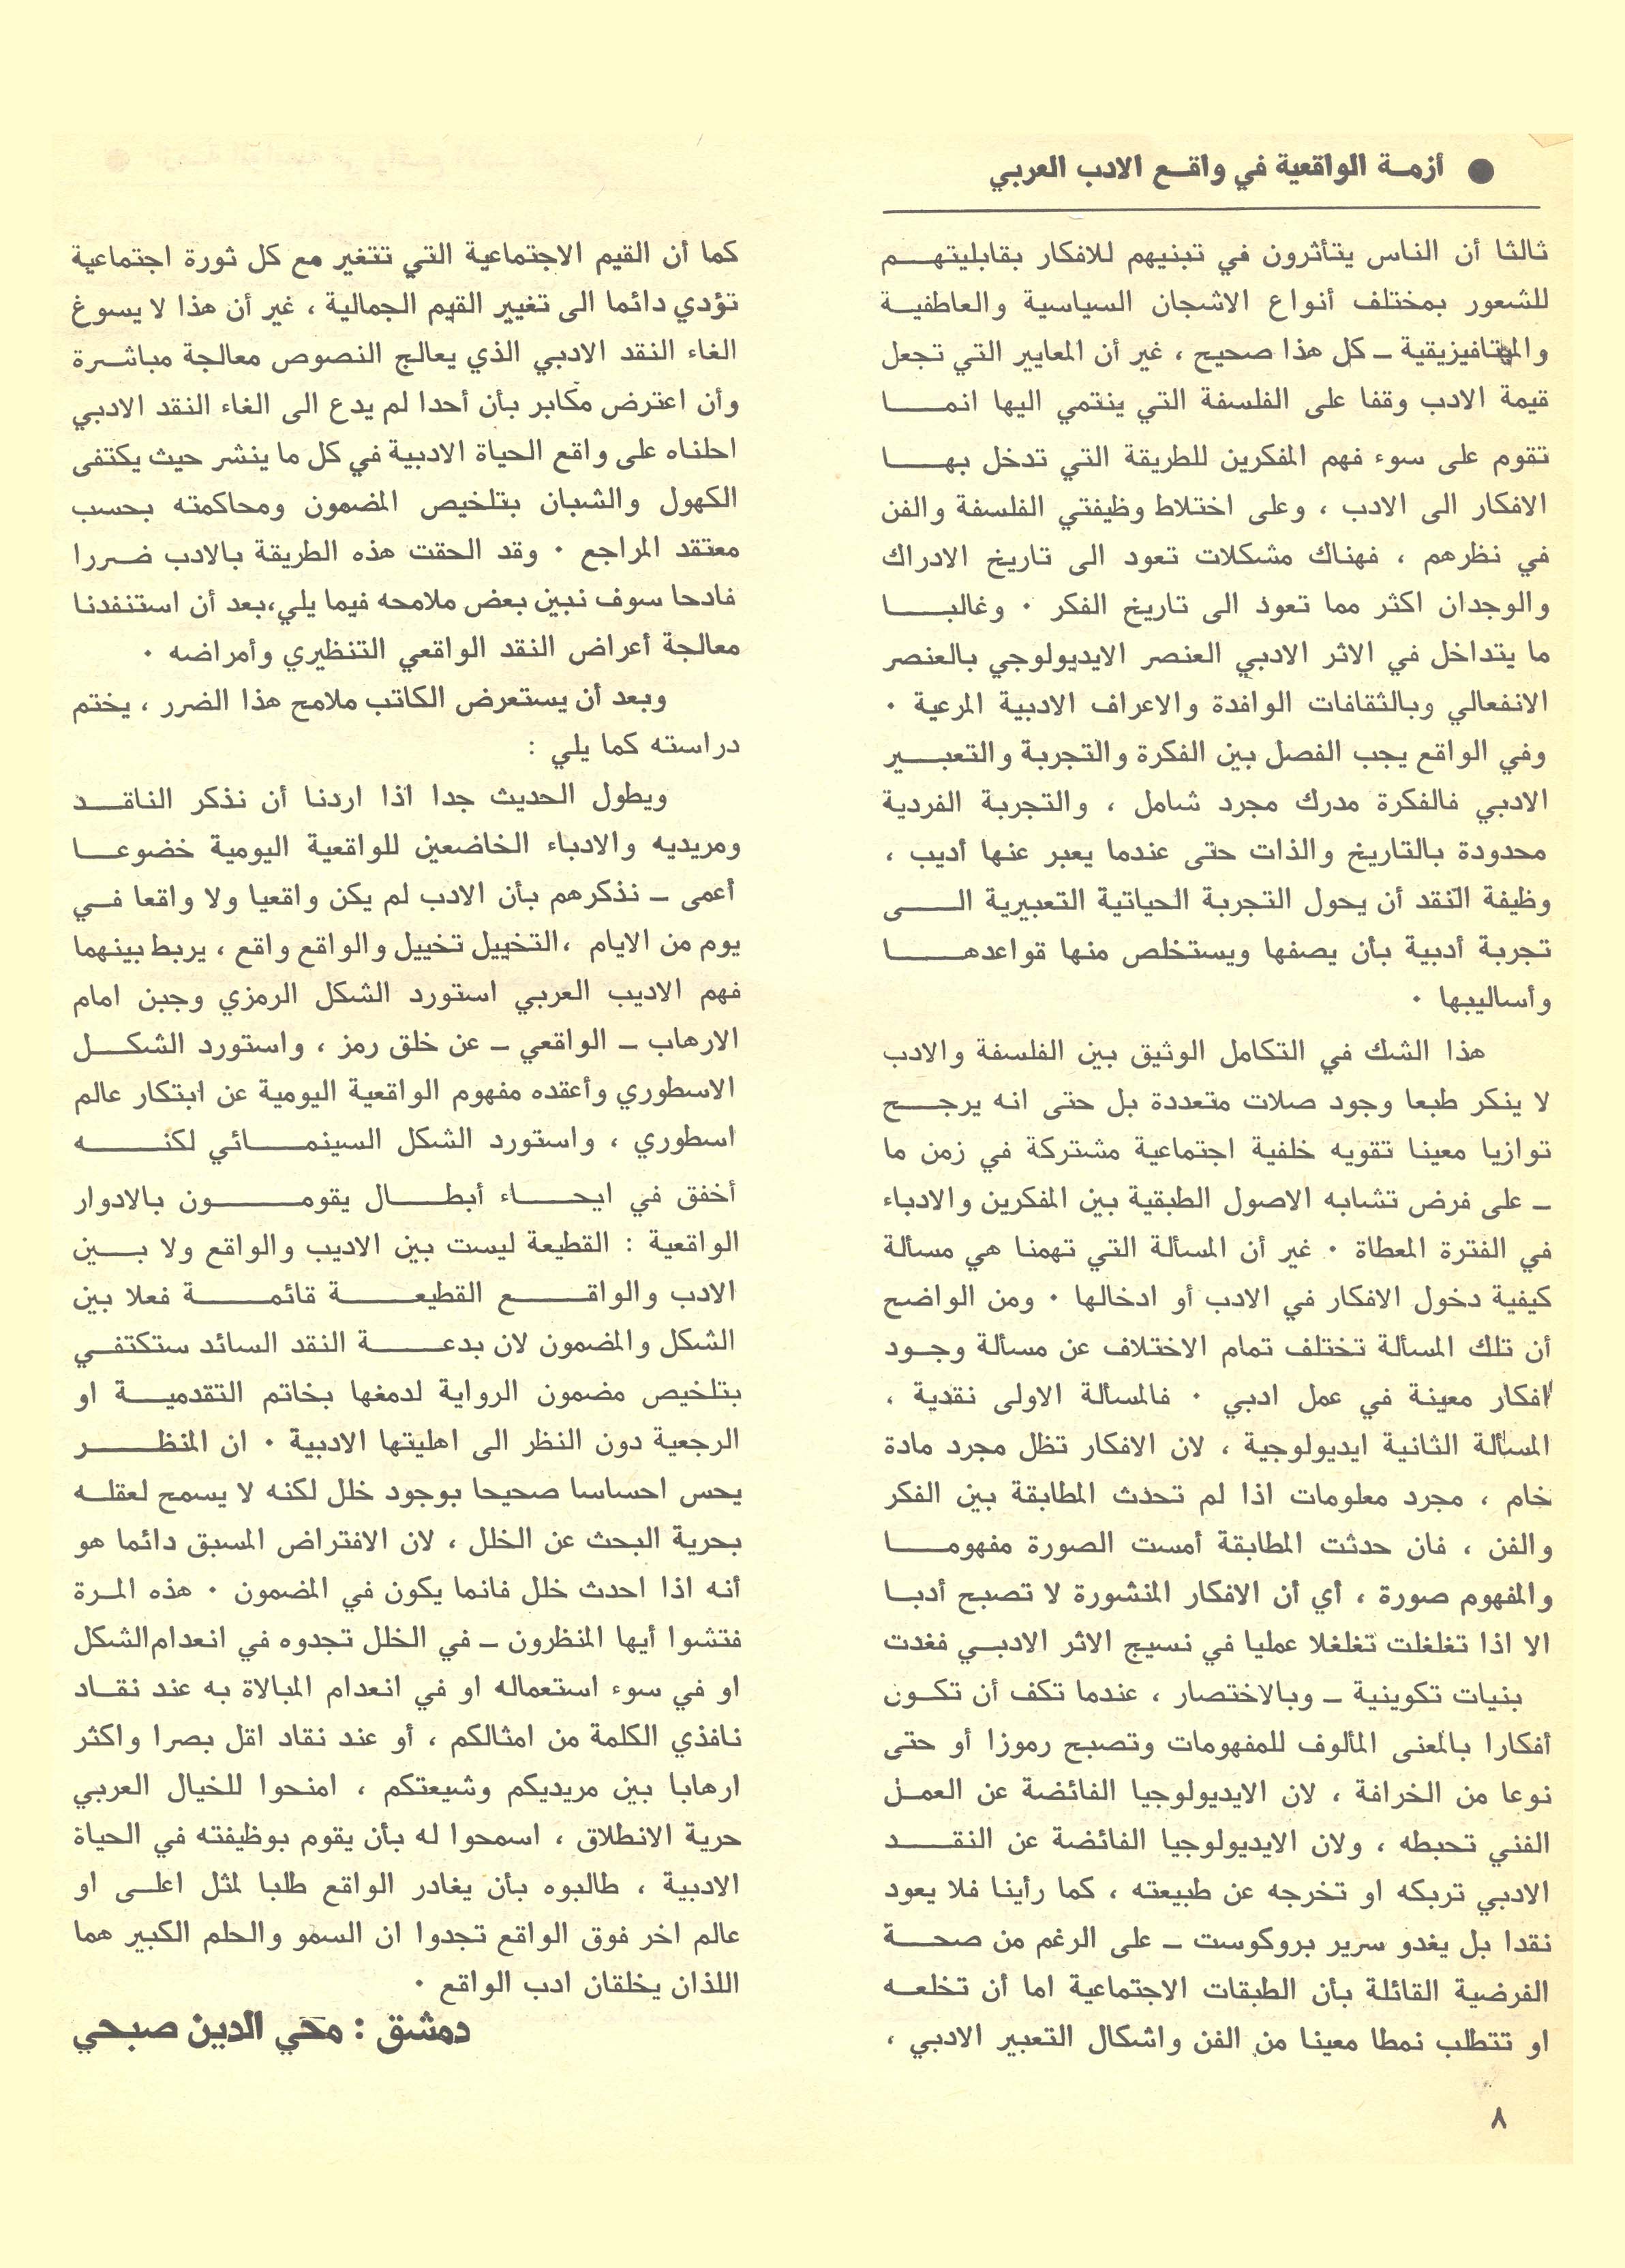 ● أزمة الواقعية في واقع الادب العربي
ثالثا أن الناس يتأثرون في تبنيهم للافكار بقابليتهم
للشعور بمختلف أنواع الاشجان السياسية والعاطفية
والميتافيزيقية ـ كل هذا صحيح ، غير أن المعايير التي تجعل
قيمة الادب وقفا على الفلسفة التي ينتمي اليها انما
تقوم على سوء فهم المفكرين للطريقة التي تدخل بها
الافكار الى الادب ، وعلى اختلاط وظيفتي الفلسفة والفن
في نظرهم ، فهناك مشكلات تعود الى تاريخ الادراك
والوجدان اكثر مما تعود الى تاريخ الفكر ٠ وغالبا
ما يتداخل في الاثر الادبي العنصر الايديولوجي بالعنصر
الانفعالي وبالثقافات الوافدة والاعراف الادبية المرعية ٠
وفي الواقع يجب الفصل بين الفكرة والتجربة والتعبير
الادبي فالفكرة مدرك مجرد شامل ، والتجربة الفردية
محدودة بالتاريخ والذات حتى عندما يعبر عنها أديب ،
وظيفة النقد أن يحول التجربة الحياتية التعبيرية الى
تجربة أدبية بأن يصفها ويستخلص منها قواعدها
وأساليبها ٠
هذا الشك في التكامل الوثيق بين الفلسفة والادب
لا ينكر طبعا وجود صلات متعددة بل حتى انه يرجح
توازيا معينا تقويه خلفية اجتماعية مشتركة في زمن ما
ـ على فرض تشابه الاصول الطبقية بين المفكرين والادباء
في الفترة المعطاة ٠ غير أن المسألة التي تهمنا هي مسألة
كيفية دخول الافكار في الادب أو ادخالها ٠ ومن الواضح
أن تلك المسألة تختلف تمام الاختلاف عن مسألة وجود
افكار معينة في عمل ادبي ٠ فالمسألة الاولى نقدية ،
المسألة الثانية ايديولوجية ، لان الافكار تظل مجرد مادة
خام ، مجرد معلومات اذا لم تحدث المطابقة بين الفكر
والفن ، فان حدثت المطابقة أمست الصورة مفهوما
والمفهوم صورة ، أي أن الافكار المنشورة لا تصبح أدبا
الا اذا تغلغلت تغلغلا عمليا في نسيج الاثر الادبي فغدت
بنيات تكوينية ـ وبالاختصار ، عندما تكف أن تكون
أفكارا بالمعنى المألوف للمفهومات وتصبح رموزا أو حتى
نوعا من الخرافة ، لان الايديولوجيا الفائضة عن العمل
الفني تحبطه ، ولان الايديولوجيا الفائضة عن النقد
الادبي تربكه او تخرجه عن طبيعته ، كما رأينا فلا يعود
نقدا بل يغدو سرير بروكوست ـ على الرغم من صحة
الفرضية القائلة بأن الطبقات الاجتماعية اما أن تخلعه
او تتطلب نمطا معينا من الفن واشكال التعبير الادبي ،
كما أن القيم الاجتماعية التي تتغير مع كل ثورة اجتماعية
تؤدي دائما الى تغيير القيم الجمالية ، غير أن هذا لا يسوغ
الغاء النقد الادبي الذي يعالج النصوص معالجة مباشرة
وأن اعترض مكابر بأن أحدا لم يدع الى الغاء النقد الادبي
احلناه على واقع الحياة الادبية في كل ما ينشر حيث يكتفى
الكهول والشبان بتلخيص المضمون ومحاكمته بحسب
معتقد المراجع ٠ وقد الحقت هذه الطريقة بالادب ضررا
فادحا سوف نبين بعض ملامحه فيما يلي،بعد أن استنفدنا
معالجة أعراض النقد الواقعي التنظيري وأمراضه ٠
وبعد أن يستعرض الكاتب ملامح هذا الضرر ، يختم
دراسته كما يلي :
ويطول الحديث جدا اذا اردنا أن نذكر الناقد
ومريديه والادباء الخاضعين للواقعية اليومية خضوعا
أعمى ـ نذكرهم بأن الادب لم يكن واقعيا ولا واقعا في
يوم من الايام ،التخييل تخييل والواقع واقع ، يربط بينهما
فهم الاديب العربي استورد الشكل الرمزي وجبن امام
الارهاب ـ الواقعي ـ عن خلق رمز ، واستورد الشكل
الاسطوري وأعقده مفهوم الواقعية اليومية عن ابتكار عالم
اسطوري ، واستورد الشكل السينمائي لكنه
أخفق في ايحاء أبطال يقومون بالادوار
الواقعية : القطيعة ليست بين الاديب والواقع ولا بين
الادب والواقع القطيعة قائمة فعلا بين
الشكل والمضمون لان بدعة النقد السائد ستكتفي
بتلخيص مضمون الرواية لدمغها بخاتم التقدمية او
الرجعية دون النظر الى اهليتها الادبية ٠ ان المنظر
يحس احساسا صحيحا بوجود خلل لكنه لا يسمح لعقله
بحرية البحث عن الخلل ، لان الافتراض المسبق دائما هو
أنه اذا احدث خلل فانما يكون في المضمون ٠ هذه المرة
فتشوا أيها المنظرون ـ في الخلل تجدوه في انعدام الشكل
او في سوء استعماله او في انعدام المبالاة به عند نقاد
نافذي الكلمة من امثالكم ، أو عند نقاد اقل بصرا واكثر
ارهابا بين مريديكم وشيعتكم ، امنحوا للخيال العربي
حرية الانطلاق ، اسمحوا له بأن يقوم بوظيفته في الحياة
الادبية ، طالبوه بأن يغادر الواقع طلبا لمثل اعلى او
عالم اخر فوق الواقع تجدوا ان السمو والحلم الكبير هما
اللذان يخلقان ادب الواقع ٠
دمشق : محي الدين صبحي
٨